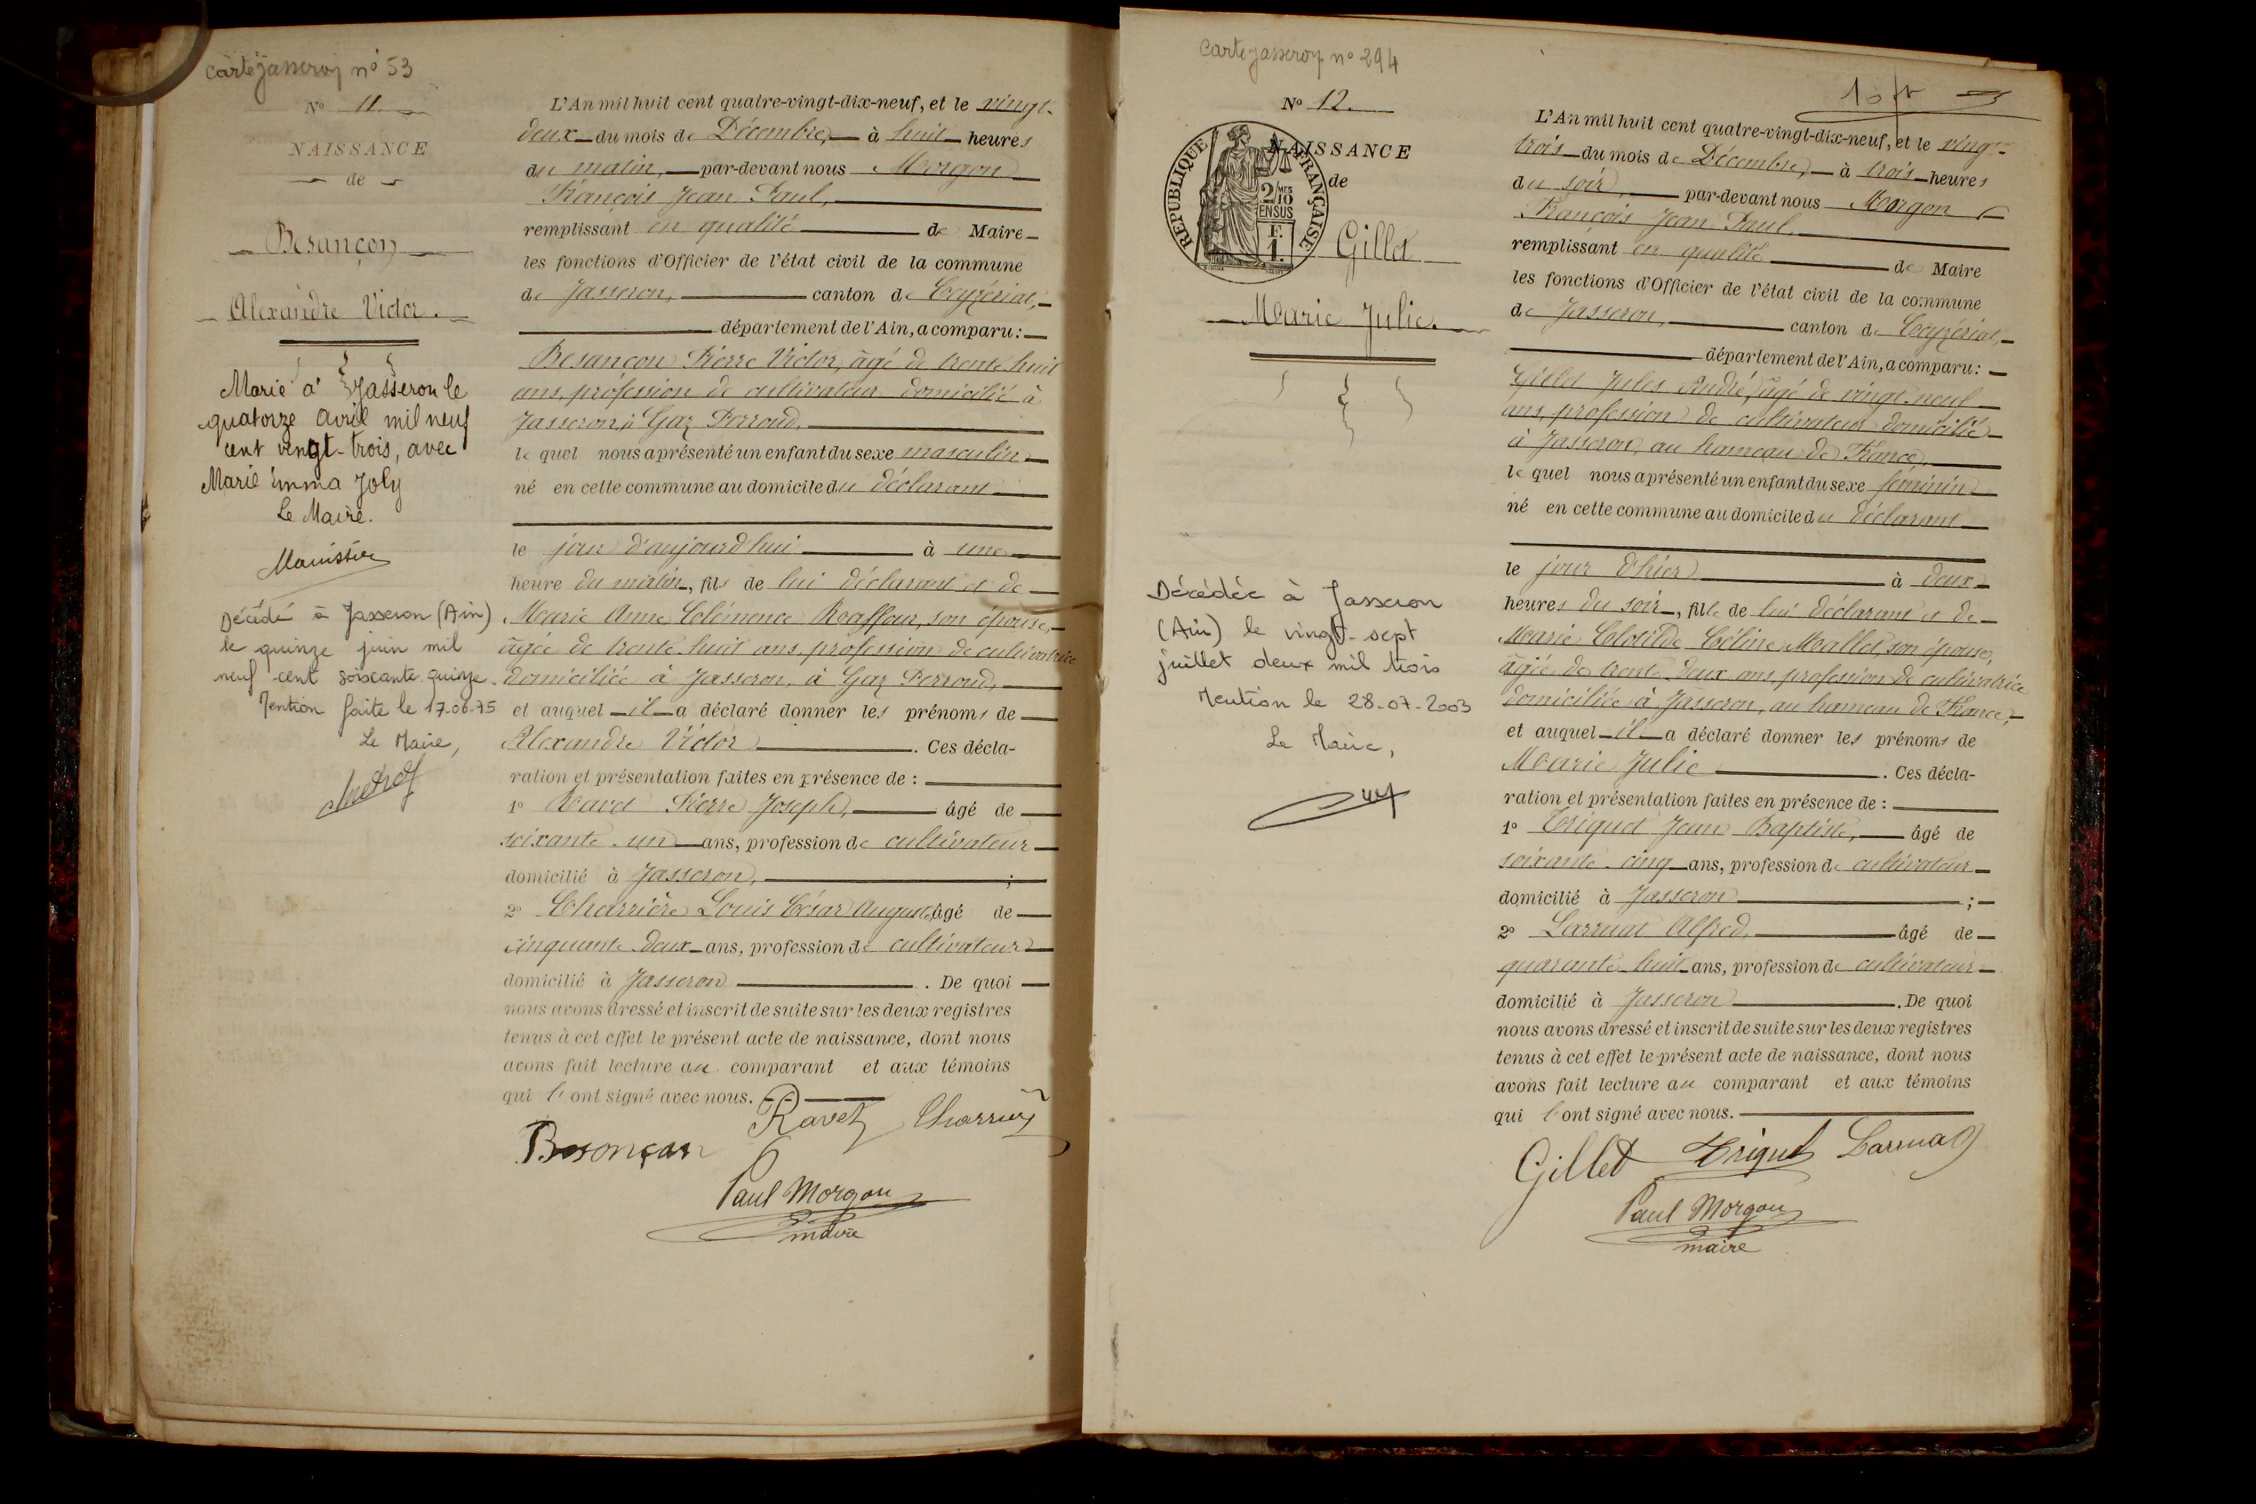 Carte Jasseron n° 53
N° 11.
NAISSANCE
de
Besançon
Alexandre Victor.
Marié à Jasseron le
quatorze avril mil neuf
cent vingt-trois, avec
Marie Emma Joly
Le Maire.
Décédé à Jasseron (Ain)
le quinze juin mil
neuf cent soixante quinze.
Mention faite le 17.06.75
Le Maire,
L'An mil huit cent quatre-vingt-dix-neuf, et le vingt-
deux du mois de Décembre, à huit heures
du matin, par-devant nous Morgon
François Jean Paul,
remplissant en qualité de Maire
les fonctions d'Officier de l'état civil de la commune
de Jasseron, canton de Ceyzériat,
département de l'Ain, a comparu:
Besançon Pierre Victor, âgé de trente huit
ans, profession de cultivateur domicilié à
Jasseron, à Gaz Perroud,
le quel nous a présenté un enfant du sexe masculin
né en cette commune au domicile du déclarant
le jour d'aujourd'hui à une
heure du matin, fils de lui déclarant et de
Marie Anne Clémence, son épouse,
âgée de trente huit ans, profession de cultivatrice
domiciliée à Jasseron, à Gaz Perroud,
et auquel il a déclaré donner les prénoms de
Alexandre Victor. Ces décla-
ration et présentation faites en présence de :
1° Ravet Pierre Joseph, âgé de
soixante un ans, profession de cultivateur
domicilié à Jasseron, ;
2° Charrière Louis César Auguste, âgé de
cinquante deux ans, profession de cultivateur
domicilié à Jasseron. De quoi
nous avons dressé et inscrit de suite sur les deux registres
tenus à cet effet le présent acte de naissance, dont nous
avons fait lecture au comparant et aux témoins
qui l'ont signé avec nous.
Ravet Charrière
Besonçon
Paul Morgon
maire
Carte Jasseron n° 294
N° 12.
NAISSANCE
de
RÉPUBLIQUE FRANÇAISE
2/10 MES
EN SUS
F.
1.
Gillet
Marie Julie.
Décédée à Jasseron
(Ain) le vingt-sept
juillet deux mil trois
Mention le 28-07-2003
Le Maire,
L'An mil huit cent quatre-vingt-dix-neuf, et le vingt-
trois du mois de Décembre, à trois heures
du soir, par-devant nous Morgon
François Jean Paul,
remplissant en qualité de Maire
les fonctions d'Officier de l'état civil de la commune
de Jasseron, canton de Ceyzériat,
département de l'Ain, a comparu:
Gillet Jules André, âgé de vingt-neuf
ans, profession de cultivateur domicilié
à Jasseron, au hameau de France,
le quel nous a présenté un enfant du sexe féminin
né en cette commune au domicile du déclarant
le jour d'hier à deux
heures du soir, fille de lui déclarant et de
Marie Clotilde Céline Mallet, son épouse,
âgée de trente deux ans profession de cultivatrice
domiciliée à Jasseron, au hameau de France,
et auquel il a déclaré donner les prénoms de
Marie Julie. Ces décla-
ration et présentation faites en présence de :
1° Triquet Jean Baptiste, âgé de
soixante cinq ans, profession de cultivateur
domicilié à Jasseron ;
2° Larruat Alfred, âgé de
quarante huit ans, profession de cultivateur
domicilié à Jasseron. De quoi
nous avons dressé et inscrit de suite sur les deux registres
tenus à cet effet le présent acte de naissance, dont nous
avons fait lecture au comparant et aux témoins
qui l'ont signé avec nous.
Gillet Triquet Larruat
Paul Morgon
maire